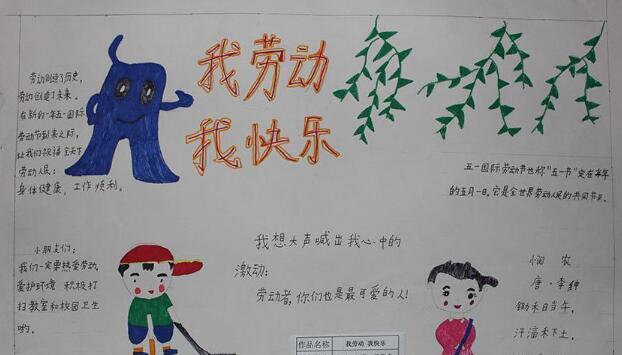 我劳动
我快乐
劳动创造了历史,
劳动创造了未来。
在新的一年五一国际
劳动节到来之际,
让我们祝福全天下
劳动人民:
身体健康,工作顺利。
五一国际劳动节也称"五一节"定在每年
的五月一日。它是全世界劳动人民的共同节日。
小朋友们:
我们一定要热爱劳动,
爱护环境 积极打
扫教室和校园卫生
哟。
我想大声喊出我心中的
激动:
劳动者,你们也是最可爱的人!
悯 农
唐·李绅
锄禾日当午,
汗滴禾下土。
作品名称 我劳动 我快乐